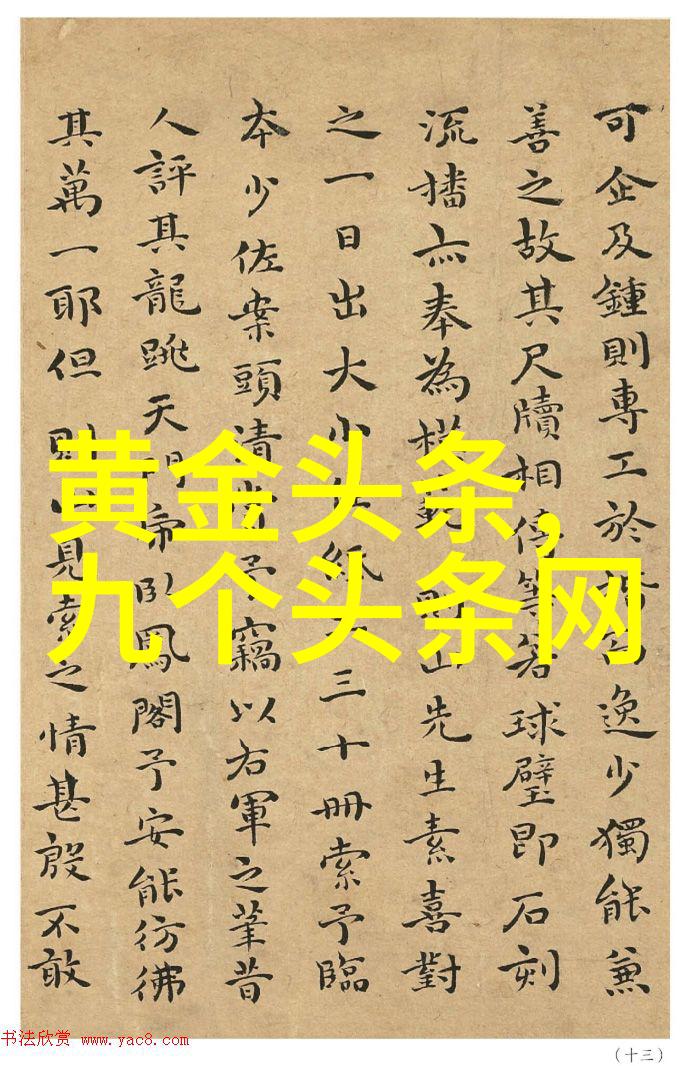 可企及鍾則專工於逸少獨能兼
善之故其尺牘相傳等若球璧即石刻
流播亦奉為則山先生素喜對
之一日出大小紙三十冊索予臨
本少佐案頭清予竊以右軍之筆昔
人評其龍跳天門臥鳳閣予安能彷彿
其萬一耶但則山見索之情甚殷不敢
黄金头条,
九个头条网
书法欣赏 www.yac8.com
(十三)